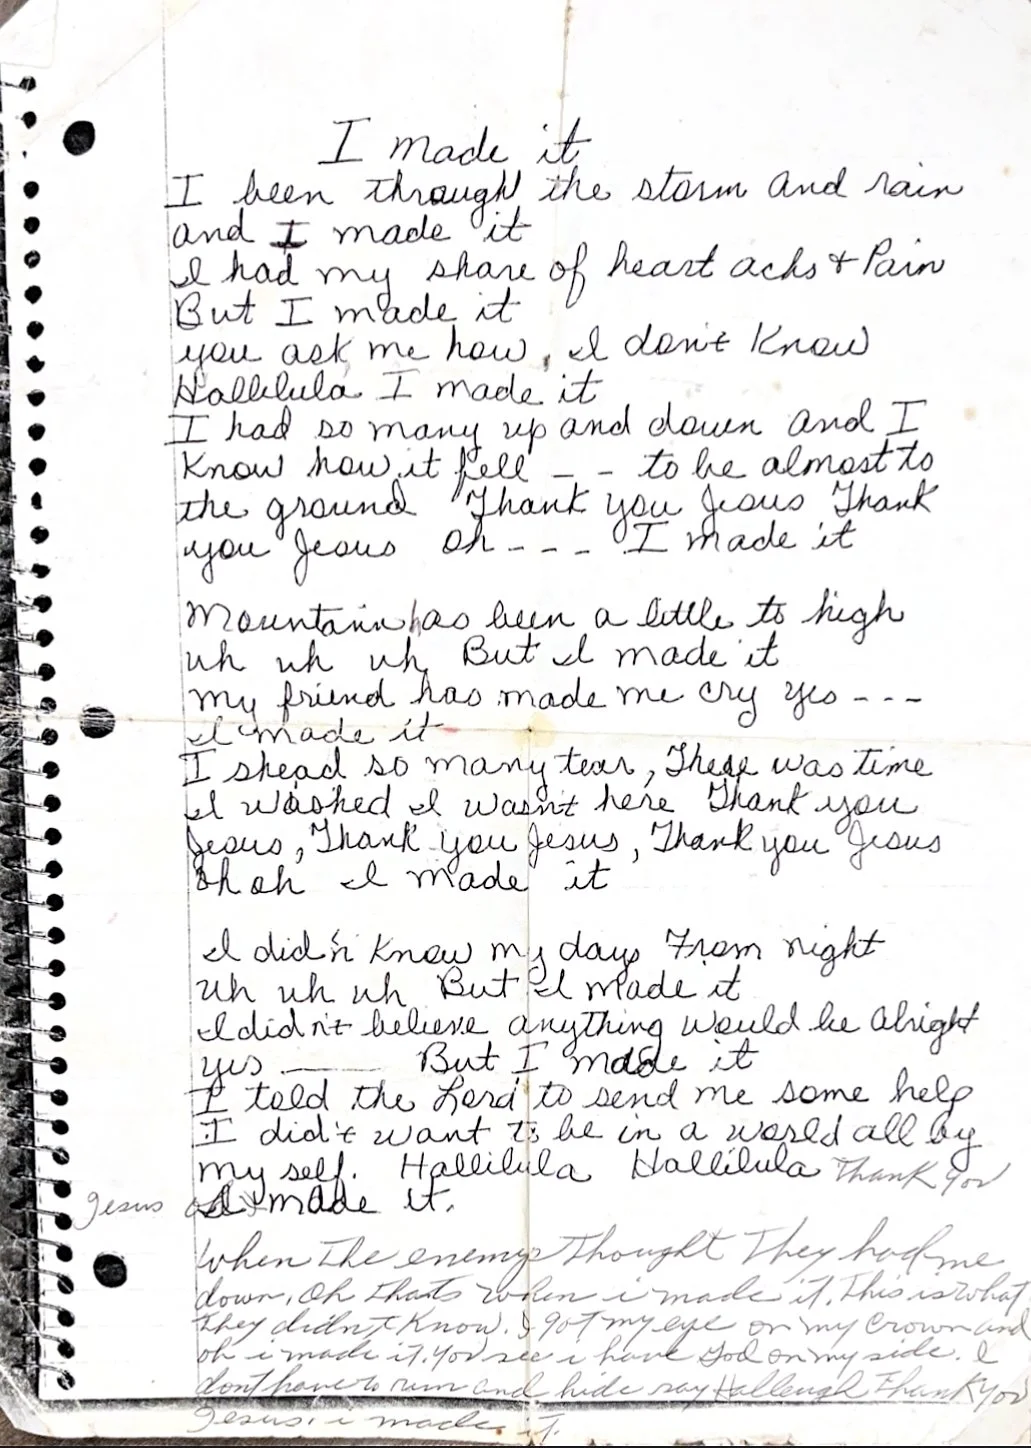 I made it
I been through the storm and rain
and I made it
I had my share of heart acks & Pain
But I made it
you ask me how, I don't Know
Hallilula I made it
I had so many up and down and I
Know how it fell - - to be almost to
the ground Thank you Jesus Thank
you Jesus oh - - - I made it
Mountain has been a little to high
uh uh uh But I made it
my friend has made me cry yes - - -
I made it
I shead so many tear, There was time
I washed I wasn't here Thank you
Jesus, Thank you Jesus, Thank you Jesus
oh oh I made it
I did'n Know my days From night
uh uh uh But I made it
I didn't believe anything would be Alright
yes —— But I made it
I told the Lord to send me some help
I did't want to be in a world all by
my self. Hallilula Hallilula Thank you
Jesus I made it.
When The enemy Thought They had me
down, Oh thats when i made it. This is what
They didn't Know. I got my eye on my Crown and
oh i made it. You see i have God on my side. I
don't have to run and hide say Halleugh Thank you
Jesus. i made it.